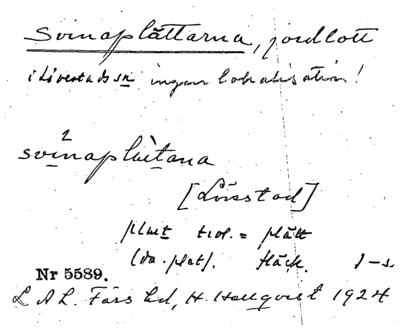 Svinaplättarna, jordlott
i Livestads sn ingen lokalisation!
2
svinaplætana
[Lösstad]
plæt trol. = plätt
(da. plet). fläck. J–s.
Nr 5589.
L A L. Färs hd, H. Hellqvist 1924